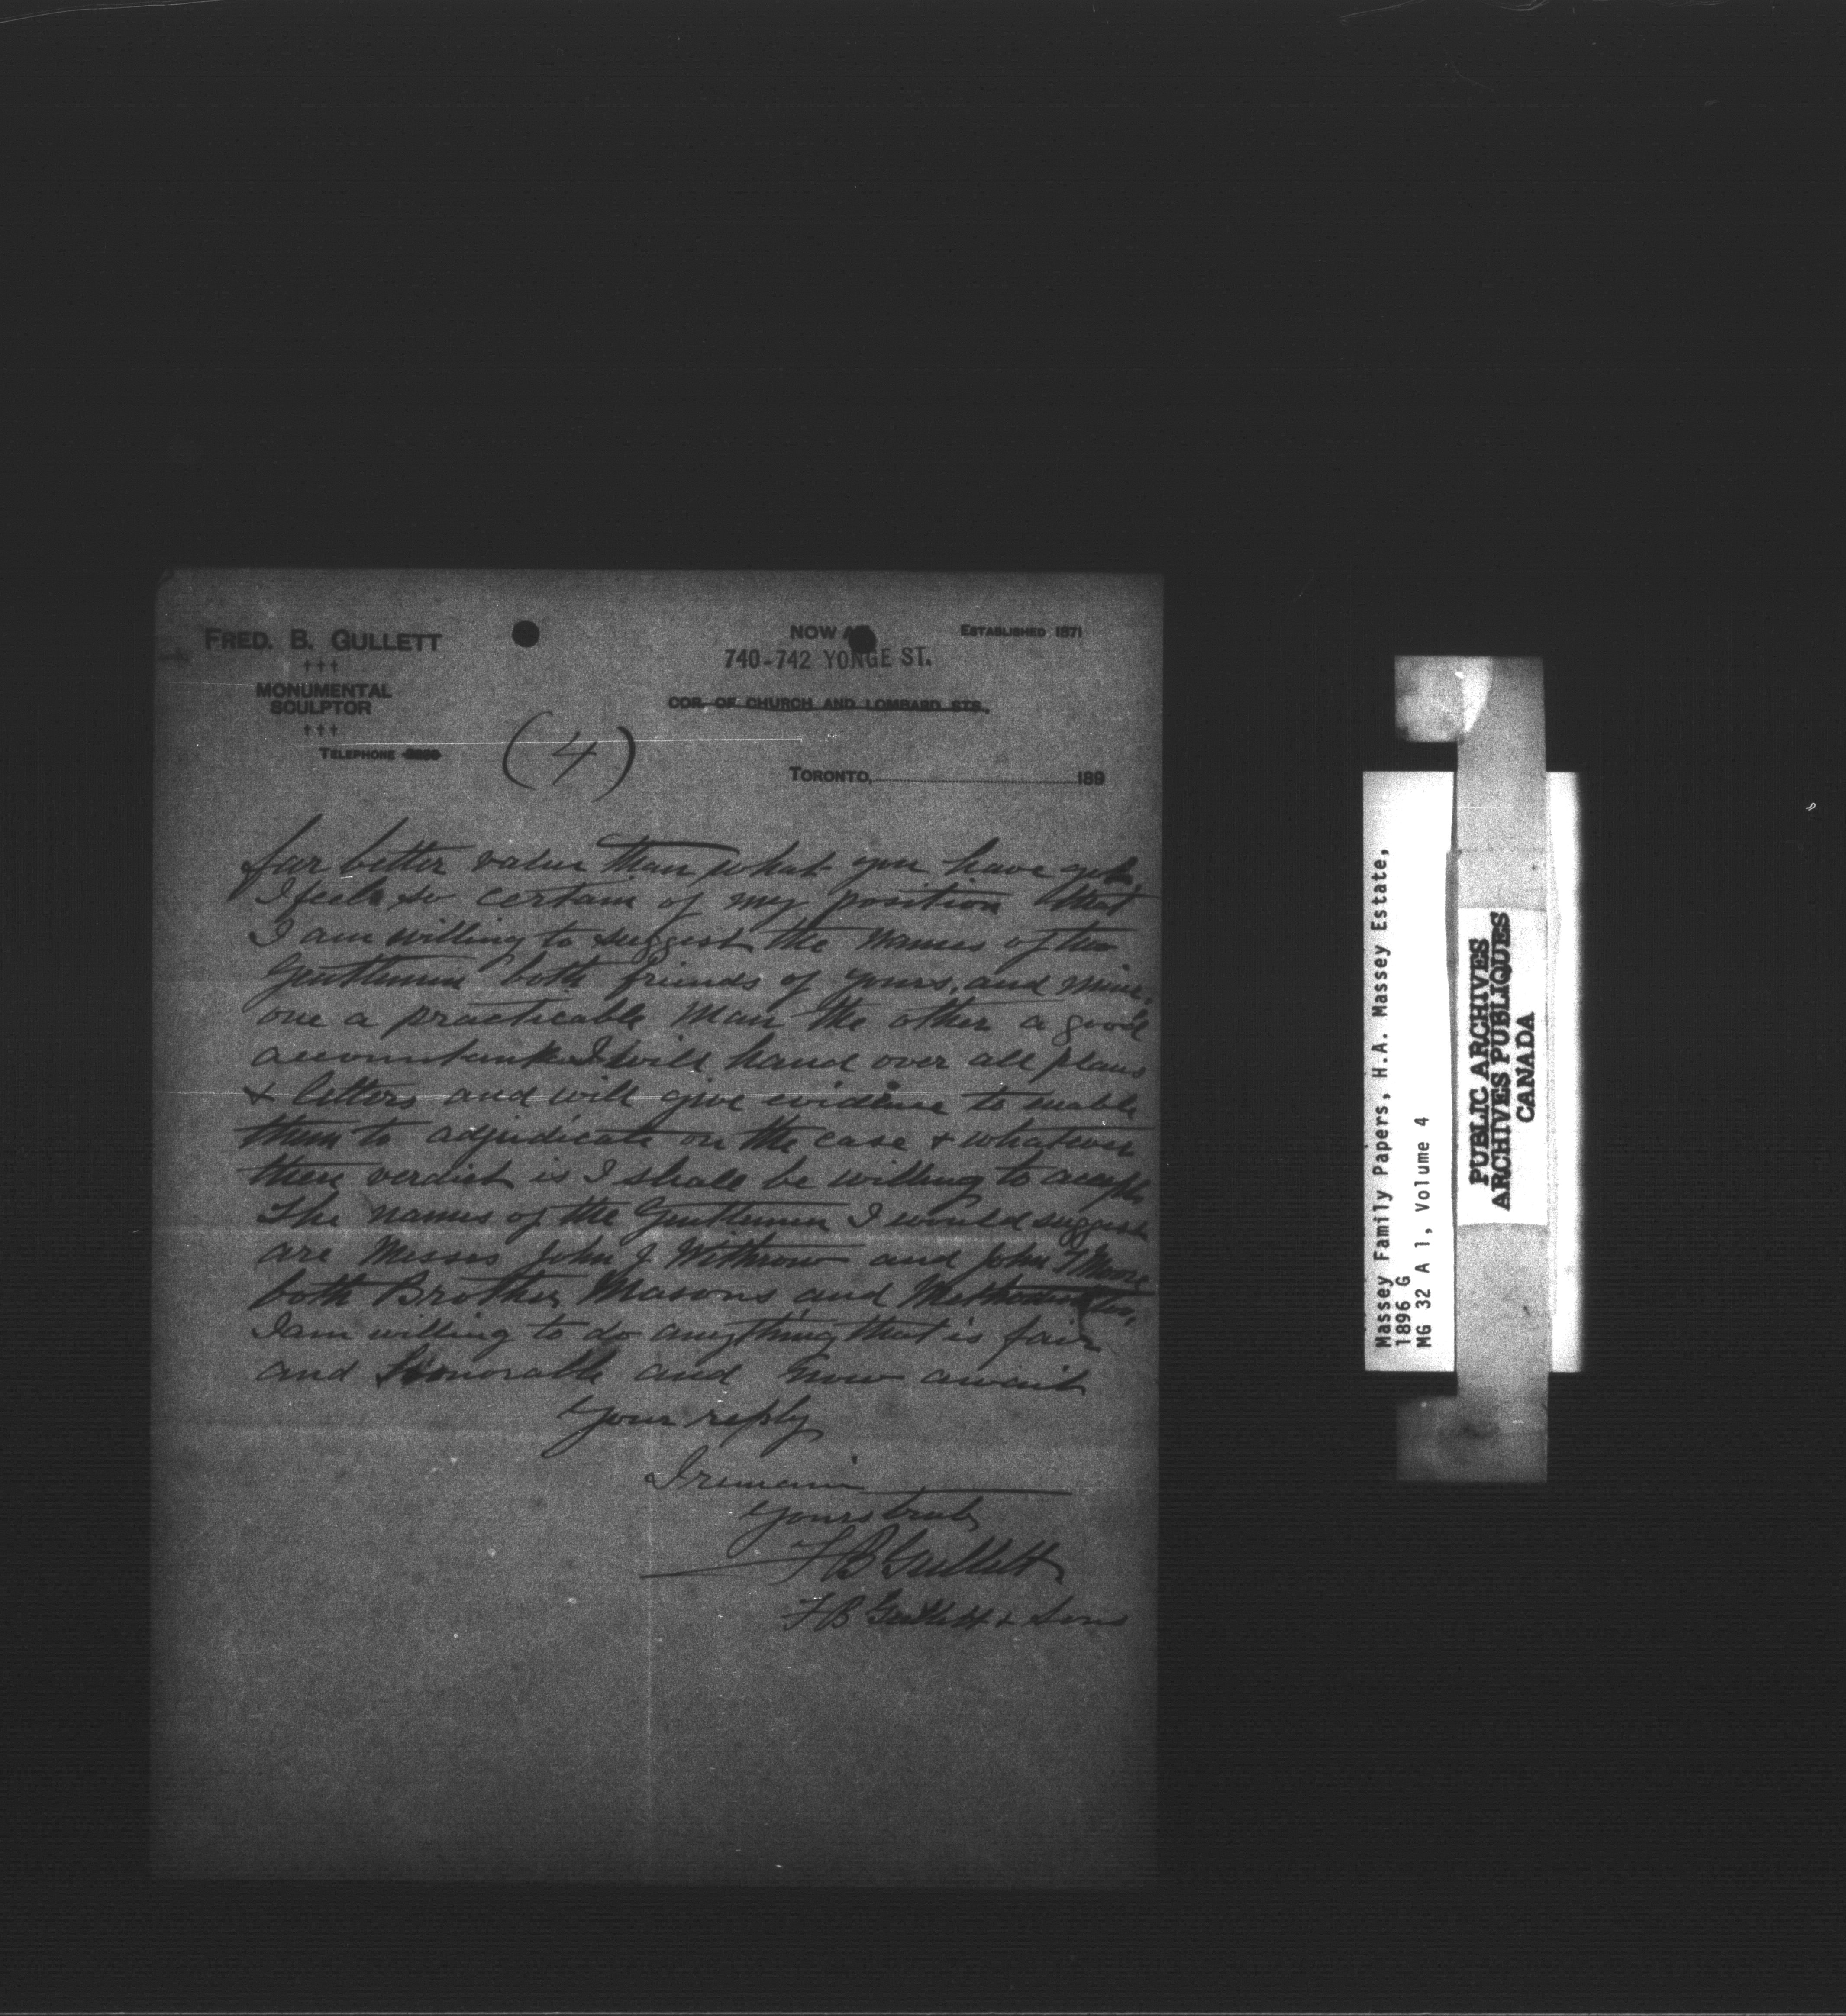 FRED. B. GULLETT
†††
MONUMENTAL
SCULPTOR
†††
TELEPHONE
NOW AT
740-742 YONGE ST.
COR. OF CHURCH AND LOMBARD STS.,
ESTABLISHED 1871
(4)
TORONTO, 189
far better value than what you have got
I feel so certain of my position that
I am willing to suggest the names of two
Gentlemen both friends of yours, and mine.
one a practicable man the other a good
accountant I will hand over all plans
& letters and will give evidence to enable
them to adjudicate on the case & whatever
their verdict is I shall be willing to accept
The names of the Gentlemen I would suggest
are Messrs John J. Withrow and John T Moore
both Brother Masons and Methodists,
I am willing to do anything that is fair
and honorable and now await
Your reply
I remain
Yours truly
F B Gullett
F B Gullett & Sons
Massey Family Papers, H.A. Massey Estate,
1896 G
MG 32 A 1, Volume 4
PUBLIC ARCHIVES
ARCHIVES PUBLIQUES
CANADA